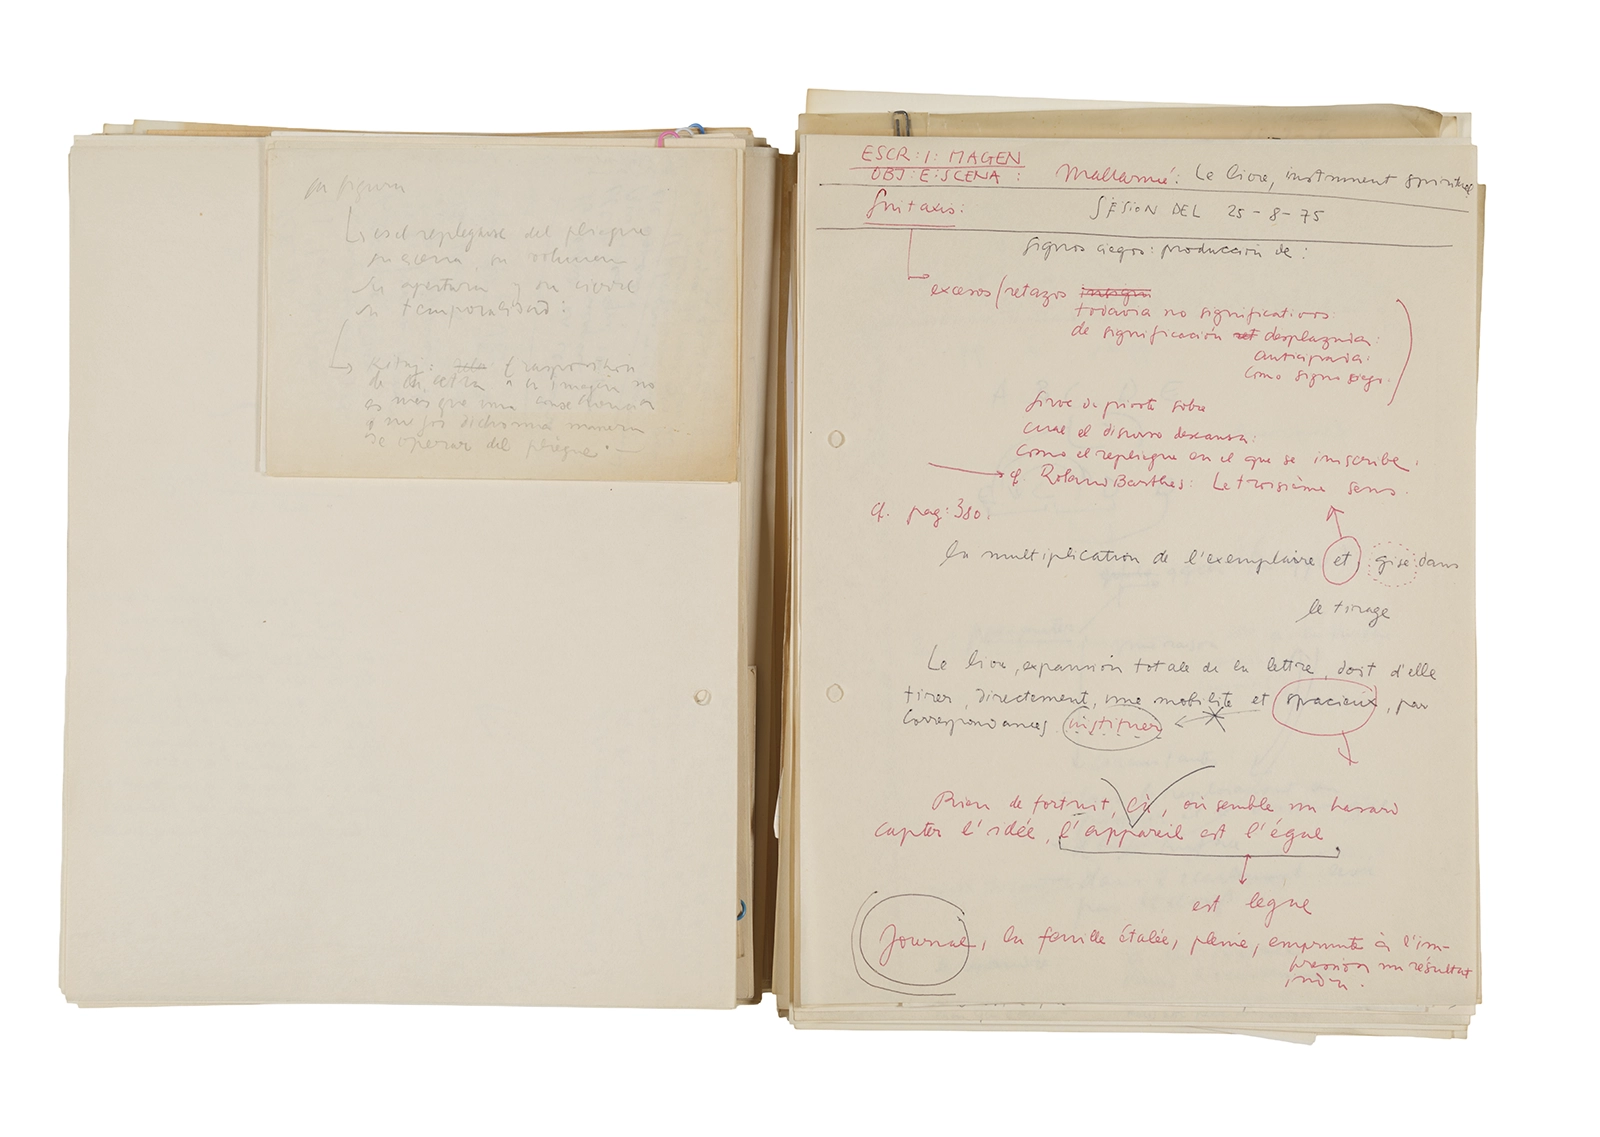 su figura
es el replegarse del pliegue
su escena, su volumen
su apertura y su cierre
su temporalidad:
de la letra a la imagen no
es más que una
se operar del pliegue.
ESCR:I:MAGEN
OBJ:E:SCENA : Mallarmé: Le livre, instrument spirituel
Sintaxis: SESION DEL 25-8-75
Signos ciegos: producción de:
excesos/retazos
todavía no significativos:
de significación desplazada:
anticipada:
como signo ciego.
sirve de pivote sobre
cual el discurso descansa:
como el repliegue en el que se inscribe.
cf Roland Barthes: Le troisième sens.
cf. pag: 380.
la multiplication de l'exemplaire et gise dans
le tirage
Le livre, expansion totale de la lettre, doit d'elle
tirer, directement, une mobilité et spacieux, par
correspondances instituer
Rien de fortuit, là, où semble un hasard
capter l'idée, l'appareil est l'égal
est legue
Journal, la feuille étalée, pleine, emprunte à l'im-
pression un résultat
indu.